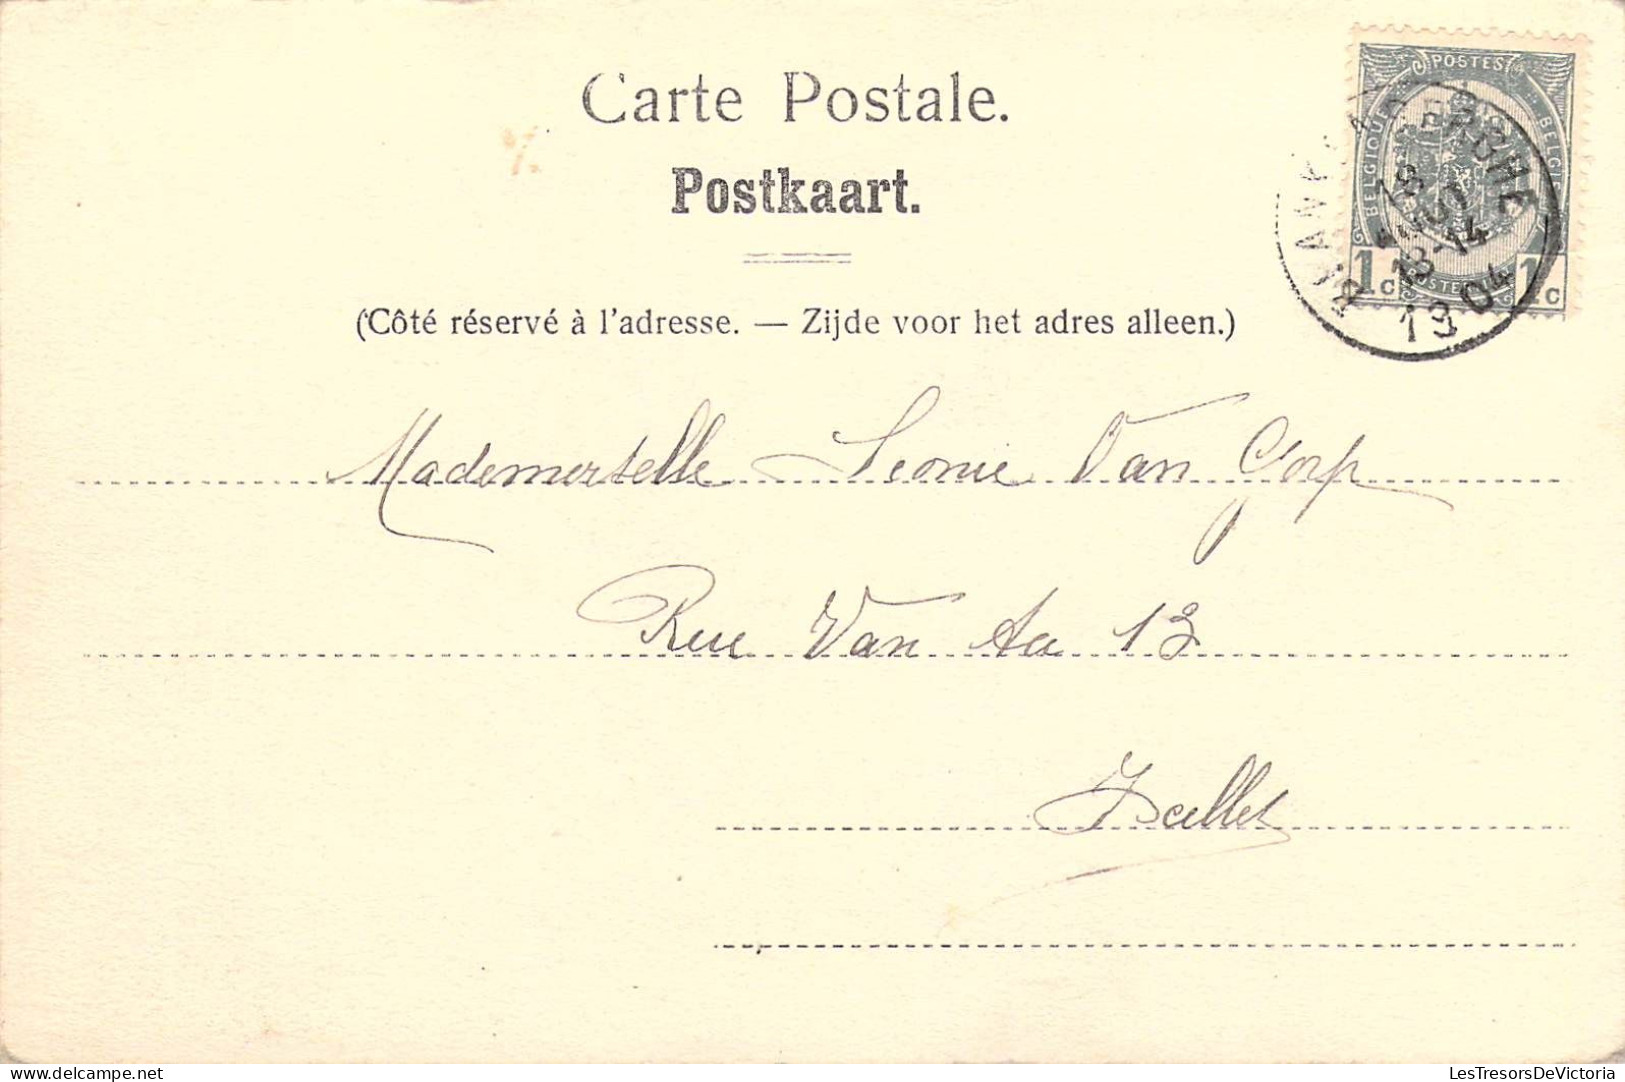 Carte Postale.
Postkaart.
(Côté réservé à l'adresse. — Zijde voor het adres alleen.)
POSTES
BELGIQUE
BELGIË
1c
1c
18
13-14
1904
Mademoiselle Leonie Van Gorp
Rue Van Aa 13
Ixelles
LesTresorsDeVictoria